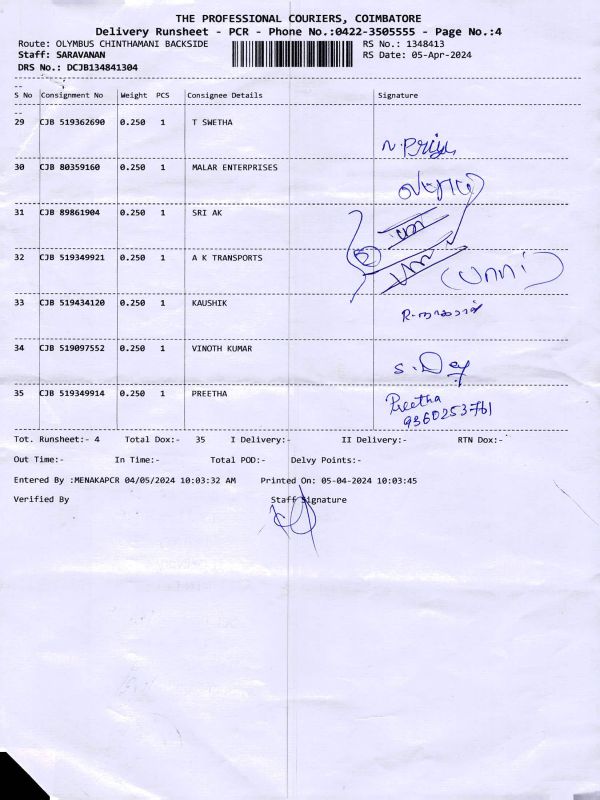 THE PROFESSIONAL COURIERS, COIMBATORE
Delivery Runsheet - PCR - Phone No.:0422-3505555 - Page No.:4
Route: OLYMBUS CHINTHAMANI BACKSIDE RS No.: 1348413
Staff: SARAVANAN RS Date: 05-Apr-2024
DRS No.: DCJB134841304
S No Consignment No Weight PCS Consignee Details Signature
29 CJB 519362690 0.250 1 T SWETHA
N.Priya
30 CJB 80359160 0.250 1 MALAR ENTERPRISES
31 CJB 89861904 0.250 1 SRI AK
32 CJB 519349921 0.250 1 A K TRANSPORTS
33 CJB 519434120 0.250 1 KAUSHIK
34 CJB 519097552 0.250 1 VINOTH KUMAR
35 CJB 519349914 0.250 1 PREETHA
Preetha
9360253761
Tot. Runsheet:- 4 Total Dox:- 35 I Delivery:- II Delivery:- RTN Dox:-
Out Time:- In Time:- Total POD:- Delvy Points:-
Entered By :MENAKAPCR 04/05/2024 10:03:32 AM Printed On: 05-04-2024 10:03:45
Verified By Staff Signature